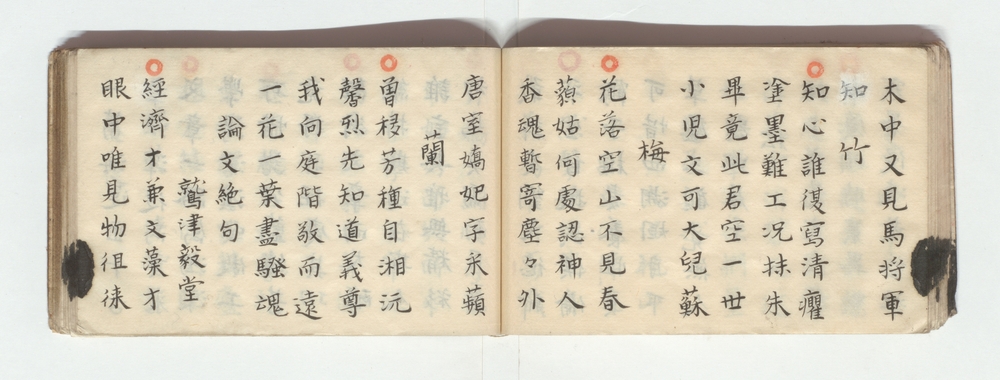 木中又見馬将軍
知竹
知心誰復寫清癯
塗墨難工况抹朱
畢竟此君空一世
小児文可大兒蘇
梅
花落空山不見春
藐姑何處認神人
香魂暫寄塵々外
唐室嬌妃字釆蘋
蘭
曽移芳種自湘沅
馨烈先知道義尊
我向庭階敬而遠
一花一葉盡騒魂
論文絶句
鷲津毅堂
經濟才兼文藻才
眼中唯見物徂徠